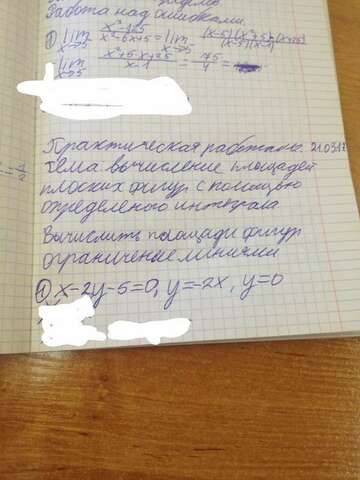 Работа над ошибками.
1) lim x→5 x³-125 / x²-6x+5 = lim x→5 (x-5)(x²+5x+25) / (x-5)(x-1)
lim x→5 x²+5x+25 / x-1 = 75/4 =
Практическая работа 21.03.
Тема вычисление площадей
плоских фигур с помощью
определеного интеграла
Вычислить площади фигур
ограничение линиями
1) x-2y-5=0, y=-2x, y=0